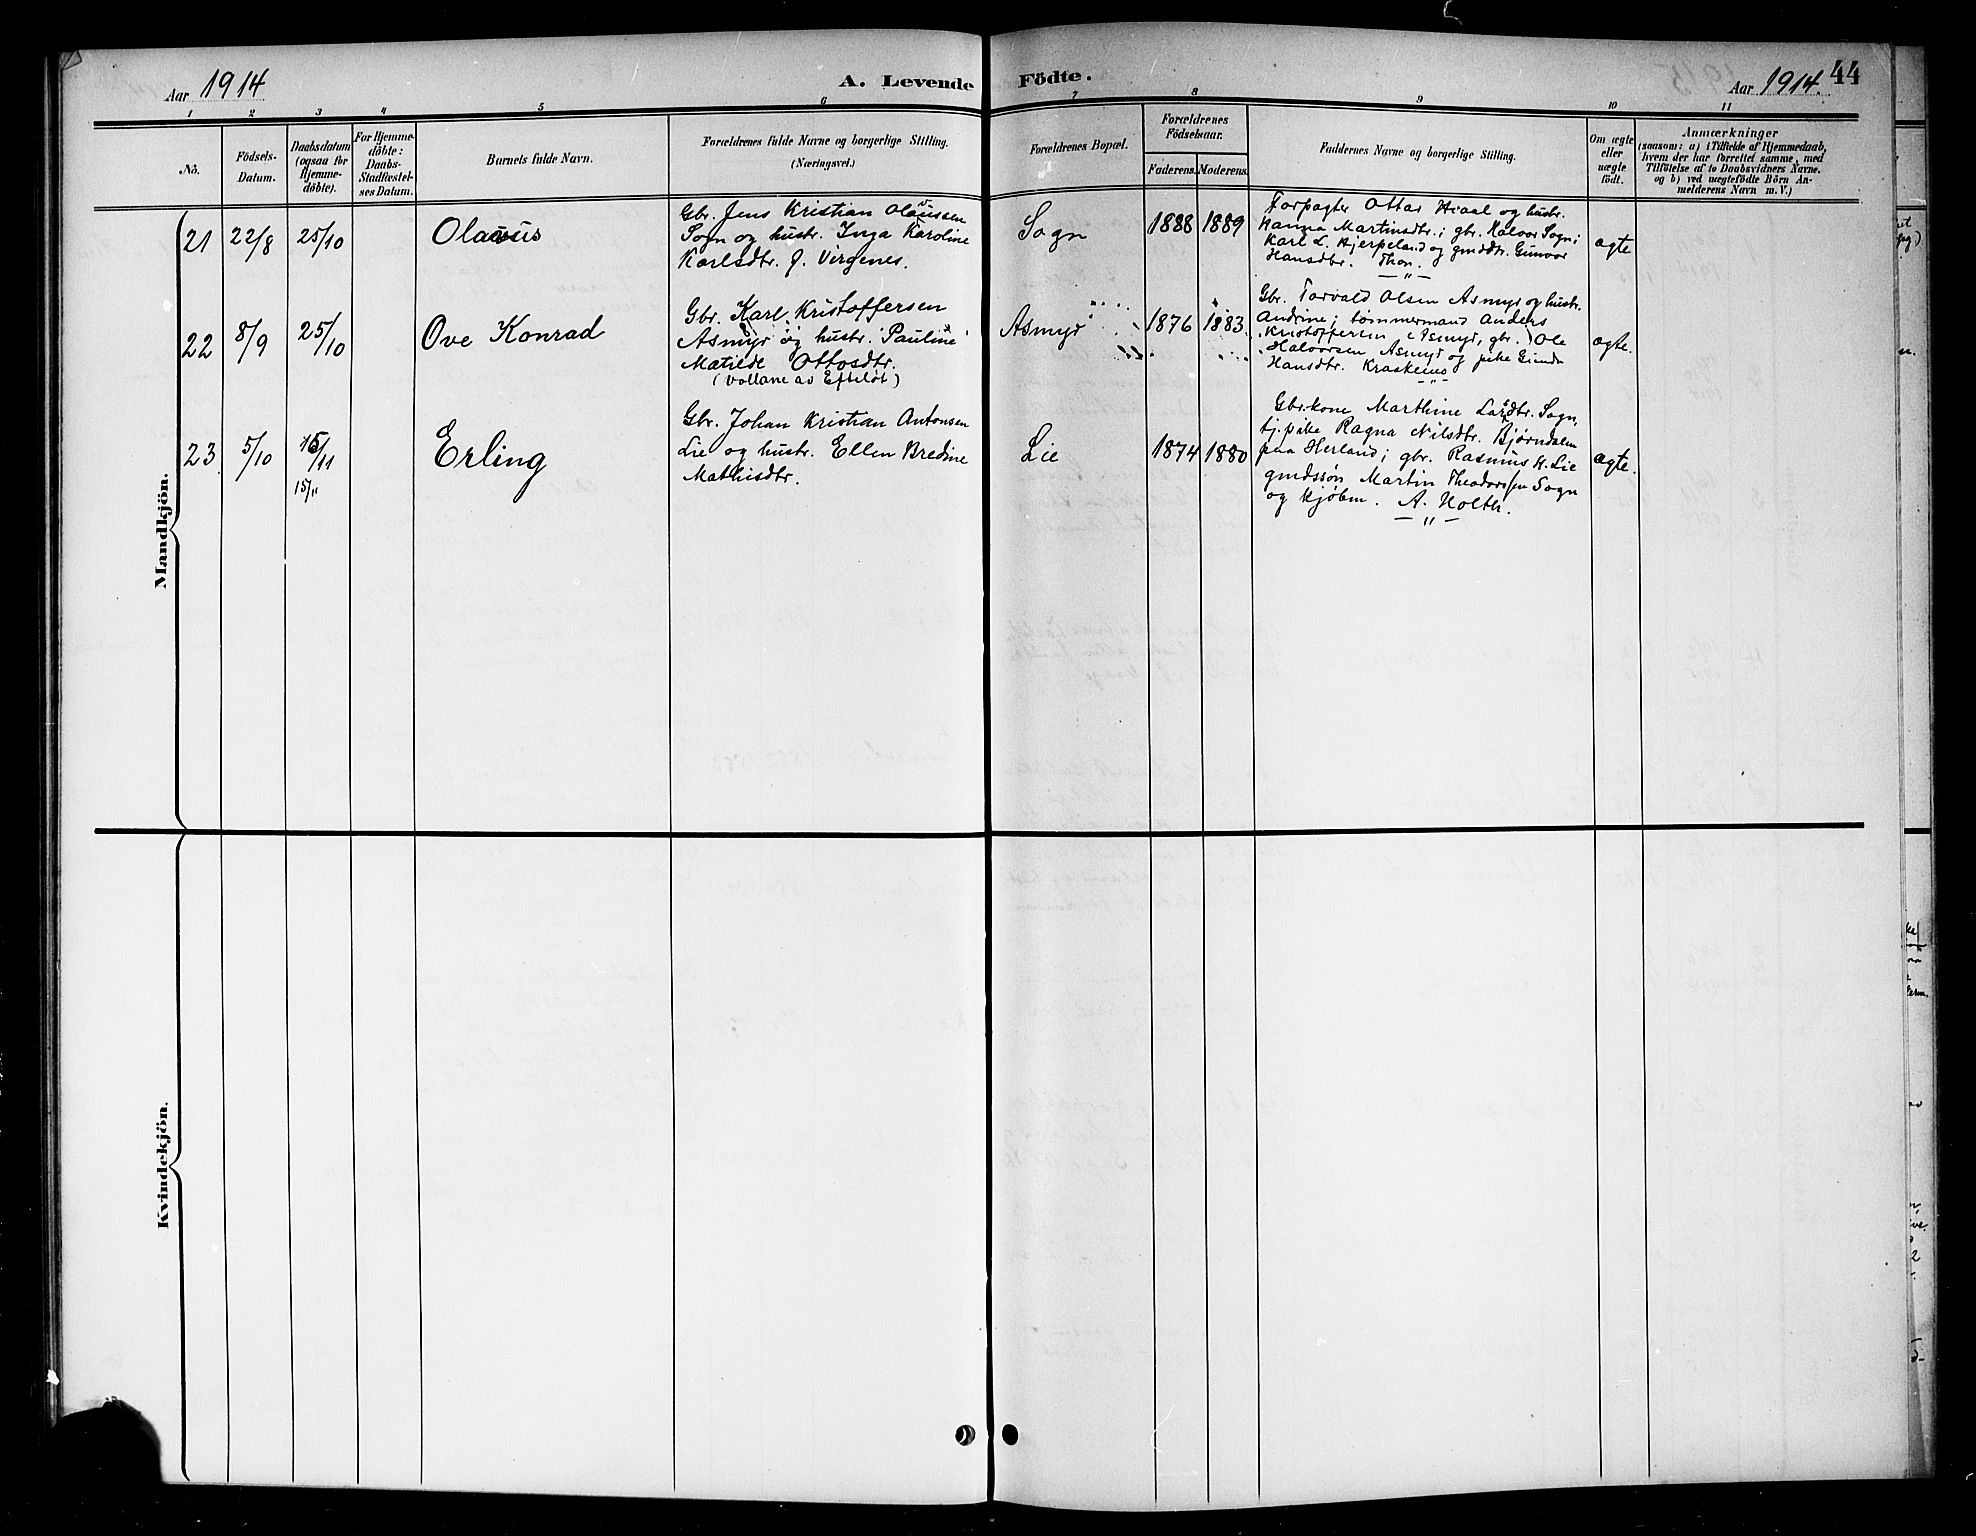 Aar 1914
A. Levende Födte.
Aar 1914. 44
1 2 3 4 5 6 7 8 9 10 11
No.
Födsels-
Datum.
Daabsdatum
(ogsaa for
Hjemme-
döbte).
For Hjemme-
döbte:
Daabs-
Stadfæstel-
ses Datum.
Barnets fulde Navn.
Forældrenes fulde Navne og borgerlige Stilling.
(Næringsvei.)
Forældrenes Bopæl.
Forældrenes
Födselsaar.
Faderens. Moderens.
Faddernes Navne og borgerlige Stilling.
Om ægte
eller
uægte
födt.
Anmærkninger
(saasom: a) i Tilfælde af Hjemmedaab,
hvem der har forrettet samme, med
Tilföielse af to Daabsvidners Navne.
og b) ved uægtefödte Börn An-
melderens Navn m. V.)
Mandkjön.
21
22/8
25/10
Olaus
Gbr. Jens Kristian Olaussen
Sogn og hustr. Inga Karoline
Karlsdtr. f. Virgenes.
Sogn
1888 1889
Forpagter Ottar Hiaal og hustr.
Hanna Martinsdtr.; gbr. Halvor Sogn;
Karl L. Hjerpeland og gmddtr. Gunvor
Hansdtr. Thon.
— " —
ægte
22
8/9
25/10
Ove Konrad
Gbr. Karl Kristoffersen
Asmyr og hustr. Pauline
Matilde Ottosdtr.
(Vollane av Efteløt)
Asmyr
1876 1883.
Gbr. Torvald Olsen Asmyr og hustr.
Andrine; tømmermand Anders
Kristoffersen (Asmyr, gbr.) Ole
Halvorsen Asmyr og pike Gunda
Hansdtr. Kraskeins
— " —
ægte.
23
5/10
15/11
15/11
Erling
Gbr. Johan Kristian Antonsen
Lie og hustr. Ellen Bredine
Mathisdtr.
Lie
1874 1880
Gbr.kone Marthine Larsdtr. Sogn,
tj.pike Ragna Nilsdtr. Bjørndalen
paa Herland; gbr. Rasmus H. Lie
gmdssøn Martin Theodorssen Sogn
og kjøbm. A. Holth.
— " —
ægte.
Kvindekjön.